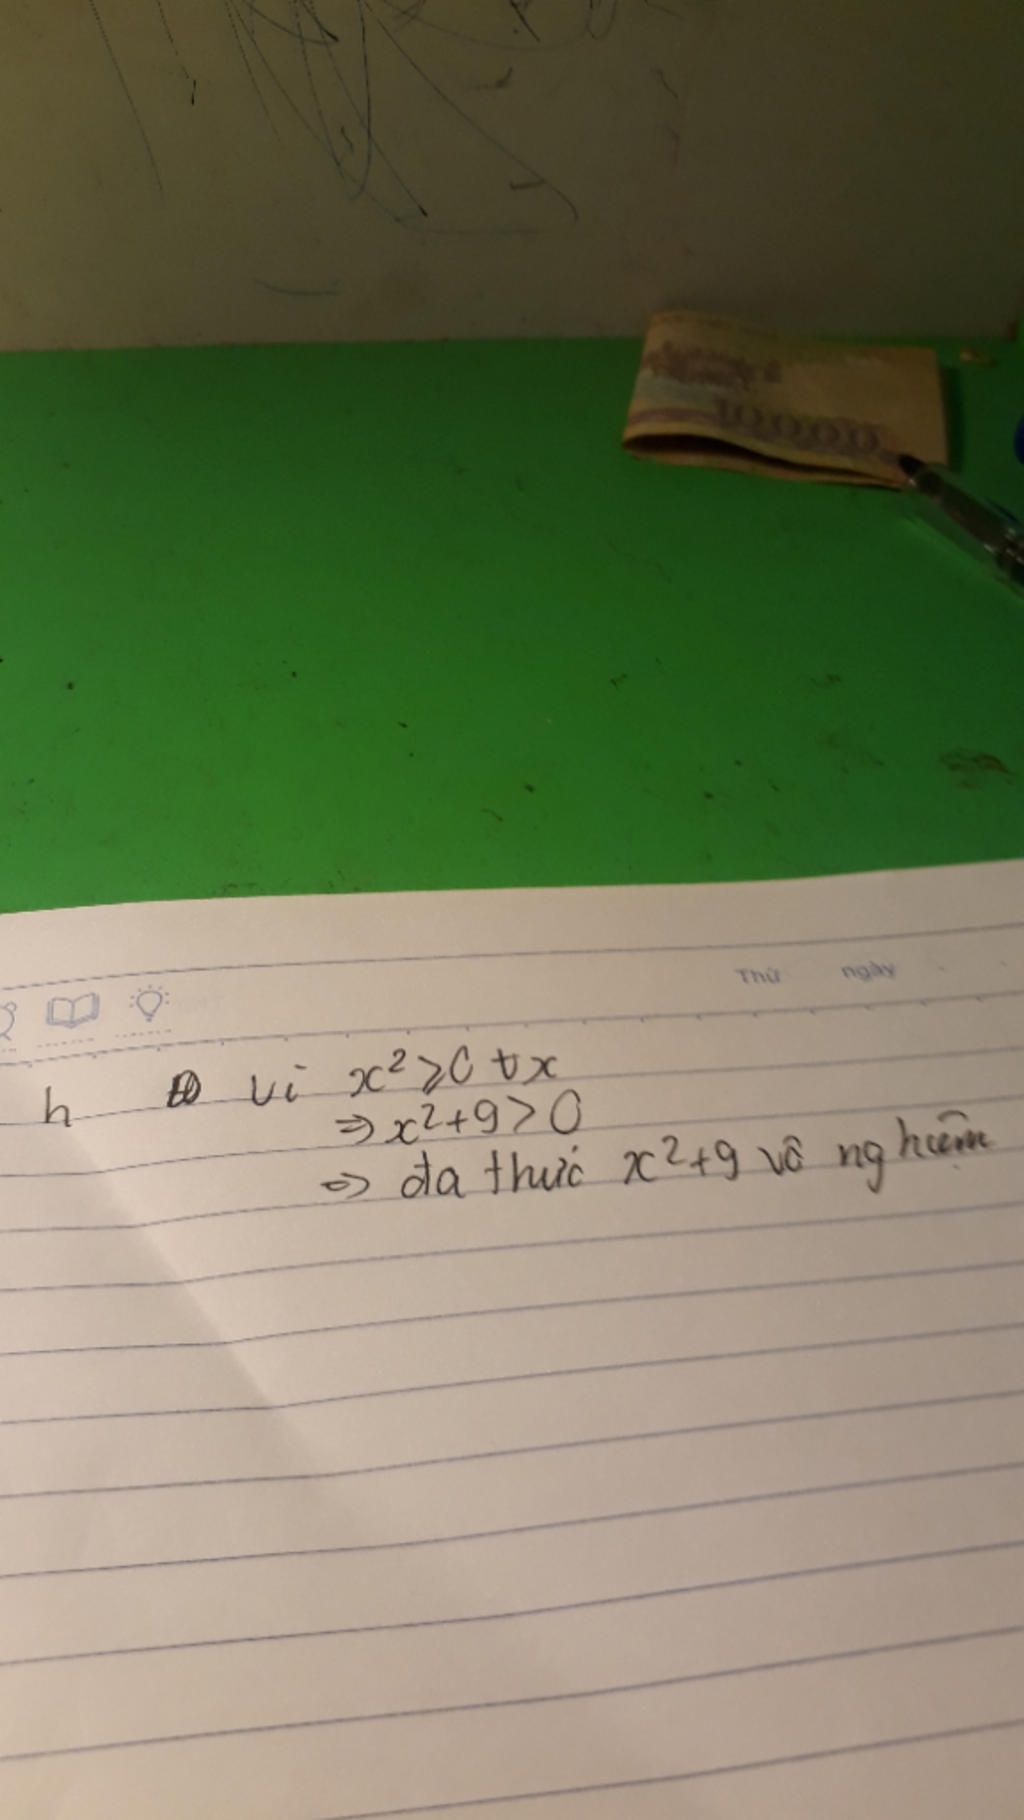 10000
Thứ ngày
h Vì x²≥0 ∀x
⇒x²+9>0
⇒ đa thức x²+9 vô nghiệm